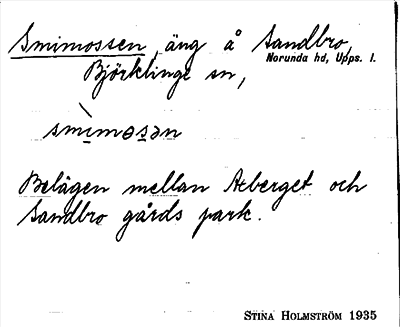 Smimossen, äng å Sandbro,
Norunda hd, Upps. l.
Björklinge sn,
smìmɷsən
Belägen mellan Åberget och
Sandbro gårds park.
STINA HOLMSTRÖM 1935